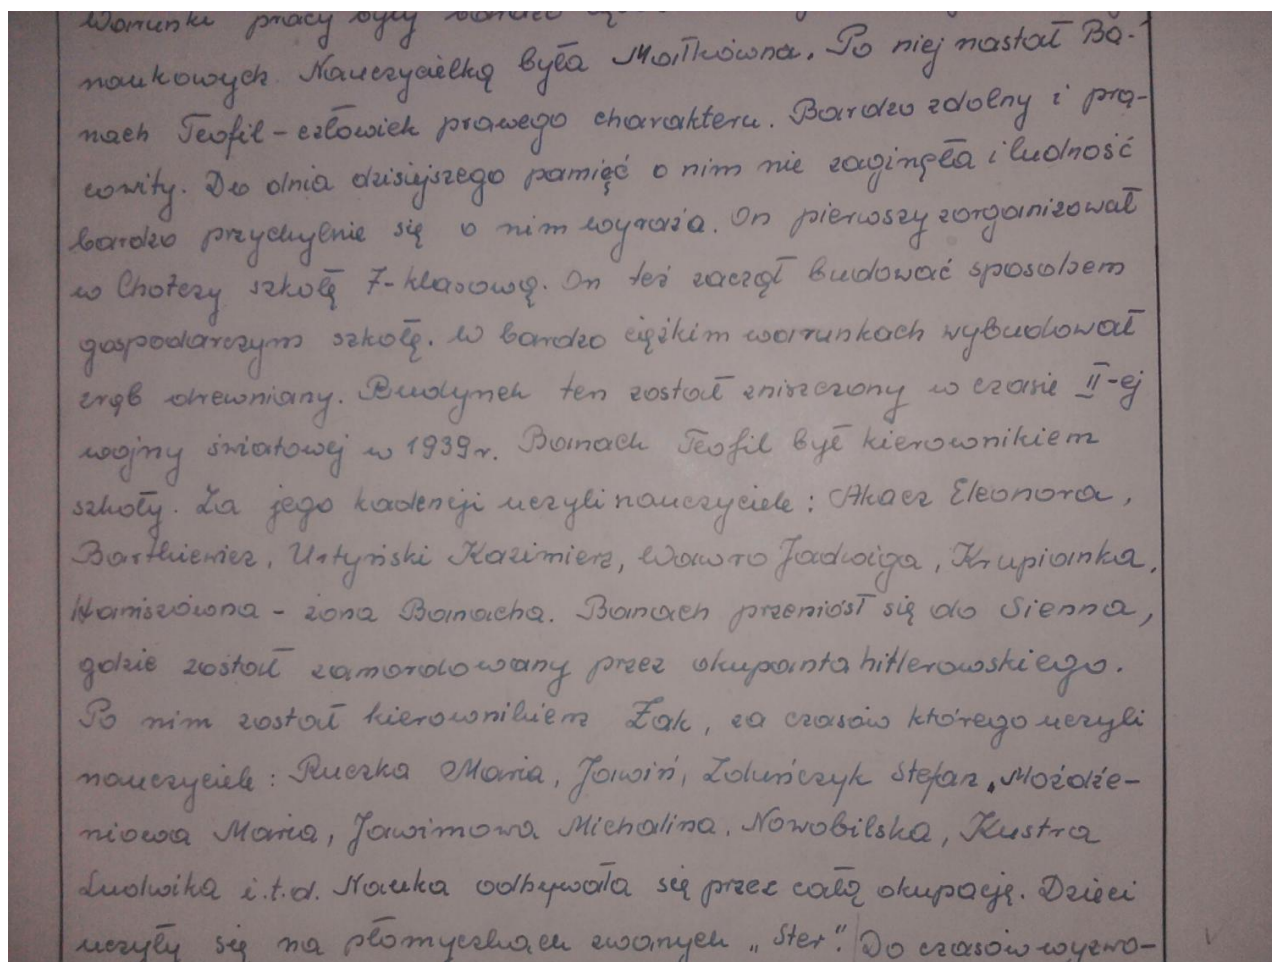 Warunki pracy były bardzo
naukowych. Nauczycielką była Maiłkówna. Po niej nastał Ba-
nach Teofil - człowiek prawego charakteru. Bardzo zdolny i pra-
cowity. Do dnia dzisiejszego pamięć o nim nie zaginęła i ludność
bardzo przychylnie się o nim wyraża. On pierwszy zorganizował
w Chotczy szkołę 7-klasową. On też zaczął budować sposobem
gospodarczym szkołę. W bardzo ciężkim warunkach wybudował
zrąb drewniany. Budynek ten został zniszczony w czasie II-ej
wojny światowej w 1939 r. Banach Teofil był kierownikiem
szkoły. Za jego kadencji uczyli nauczyciele: Akacz Eleonora,
Bartkiewicz, Ustyński Kazimierz, Wawro Jadwiga, Krupianka,
Haniszówna - żona Banacha. Banach przeniósł się do Sienna,
gdzie został zamordowany przez okupanta hitlerowskiego.
Po nim został kierownikiem Żak, za czasów którego uczyli
nauczyciele: Ruczka Maria, Jawin, Zduńczyk Stefan, Moździe-
niowa Maria, Jawimowa Michalina, Nowobilska, Kustra
Ludwika i.t.d. Nauka odbywała się przez całą okupację. Dzieci
uczyły się na płomyczkach zwanych „Ster". Do czasów wyzwo-